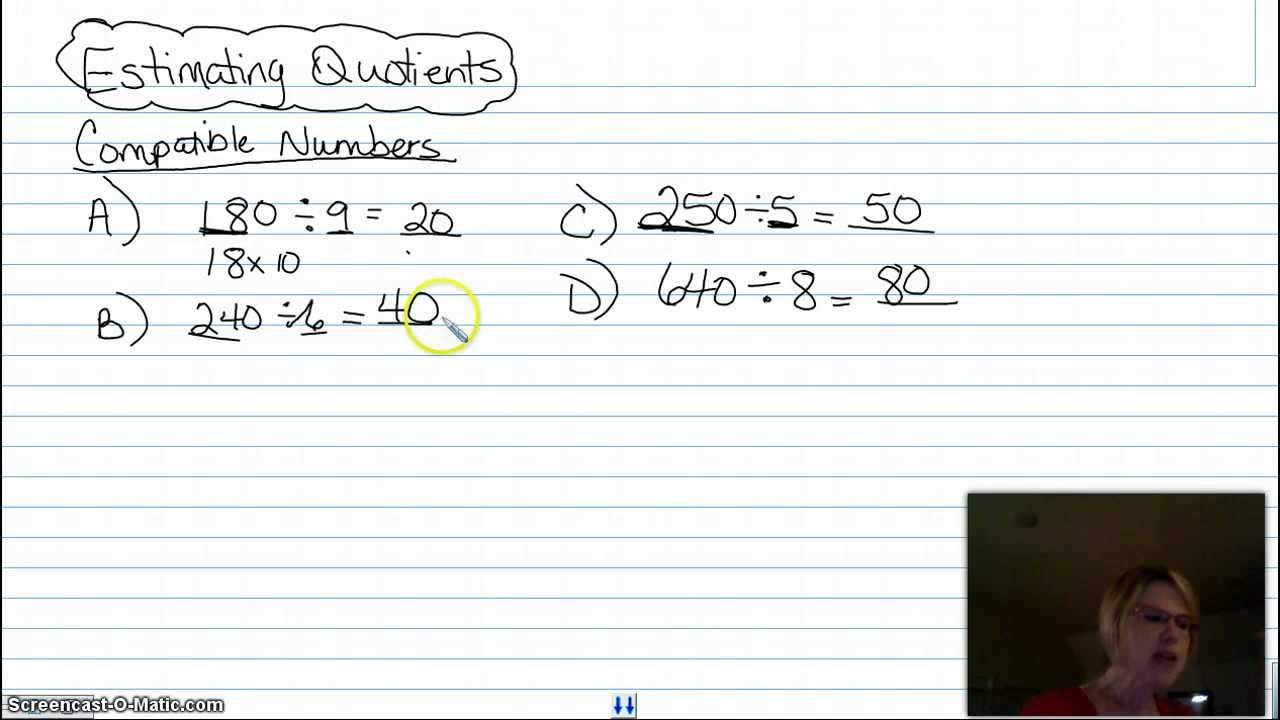 Estimating Quotients
Compatible Numbers
A) 180 ÷ 9 = 20
18 x 10
B) 240 ÷ 6 = 40
C) 250 ÷ 5 = 50
D) 640 ÷ 8 = 80
Screencast-O-Matic.com